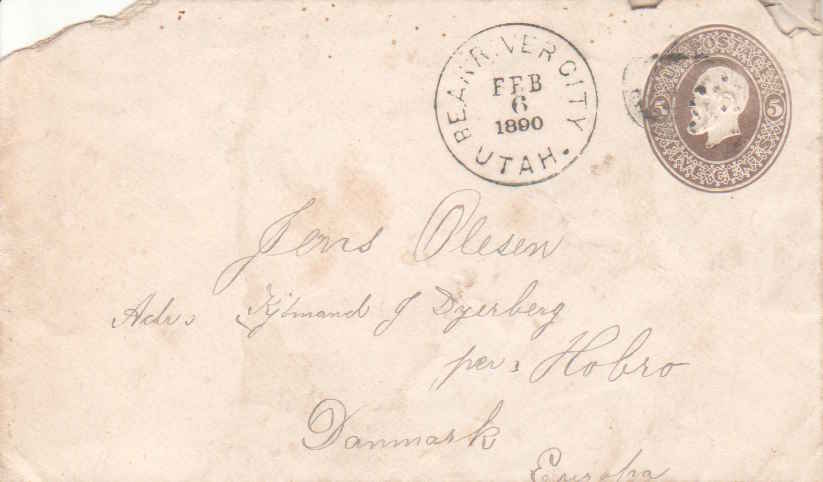 BEAR RIVER CITY
FEB
6
1890
UTAH.
U.S. POSTAGE
5 5
FIVE CENTS
Jens Olesen
Adr: Kjömand J Dyerberg
per: Hobro
Danmark
Europa